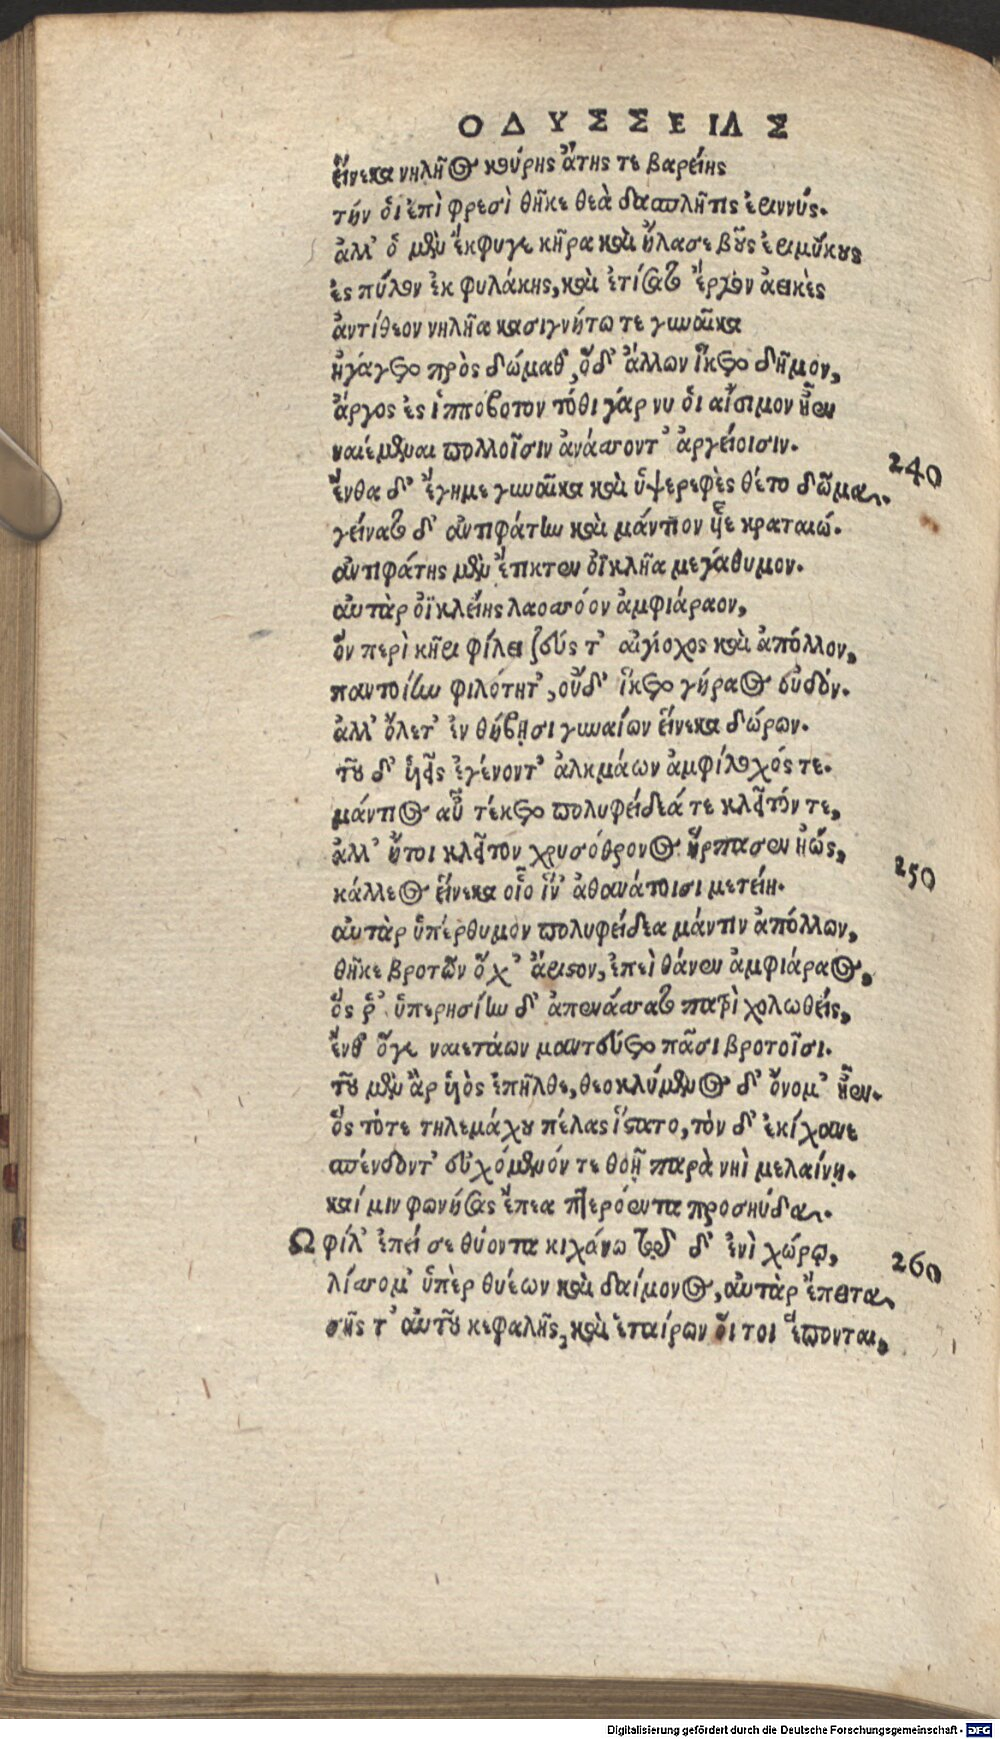 ΟΔΥΣΣΕΙΑΣ
εἵνεκα νηλῆος κούρης ἄτης τε βαρείης
τήν οἱ ἐπὶ φρεσὶ θῆκε θεὰ δασπλῆτις ἐριννύς.
ἀλλ' ὁ μὲν ἔκφυγε κῆρα καὶ ἤλασε βοῦς ἐριμύκους
ἐς πύλον ἐκ φυλάκης, καὶ ἐτίσατο ἔργον ἀεικὲς
ἀντίθεον νηλῆα κασιγνήτω τε γυναῖκα
ἠγάγετο πρὸς δώμαθ', ὅδ' ἄλλων ἵκετο δῆμον,
ἄργος ἐς ἱππόβοτον τόθι γάρ νυ οἱ αἴσιμον ἦεν
ναιέμεναι πολλοῖσιν ἀνάσσοντ' ἀργείοισιν.
240
ἔνθα δ' ἔγημε γυναῖκα καὶ ὑψερεφὲς θέτο δῶμα.
γείνατο δ' ἀντιφάτην καὶ μάντιον ἠὲ κραταιώ.
ἀντιφάτης μὲν ἔτικτεν ὀϊκλῆα μεγάθυμον.
αὐτὰρ ὀϊκλείης λαοσσόον ἀμφιάραον,
ὃν περὶ κῆρι φίλει ζεύς τ' αἰγίοχος καὶ ἀπόλλον,
παντοίην φιλότητ', οὐδ' ἵκετο γήραος οὐδόν.
ἀλλ' ὄλετ' ἐν θήβῃσι γυναίων εἵνεκα δώρων.
τοῦ δ' υἱεῖς ἐγένοντ' ἀλκμάων ἀμφίλοχός τε.
μάντιος αὖ τέκετο πολυφείδεά τε κλεῖτόν τε,
ἀλλ' ἤτοι κλεῖτον χρυσόθρονος ἥρπασεν ἠώς,
250
κάλλεος εἵνεκα οἷο ἵν' ἀθανάτοισι μετείη.
αὐτὰρ ὑπέρθυμον πολυφείδεα μάντιν ἀπόλλων,
θῆκε βροτῶν ὄχ' ἄριστον, ἐπεὶ θάνεν ἀμφιάραος,
ὅς ῥ' ὑπερησίην δ' ἀπενάσσατο πατρὶ χολωθείς,
ἔνθ' ὅγε ναιετάων μαντεύετο πᾶσι βροτοῖσι.
τοῦ μὲν ἂρ υἱὸς ἐπῆλθε, θεοκλύμενος δ' ὄνομ' ἦεν.
ὅς τότε τηλεμάχου πέλας ἵστατο, τὸν δ' ἐκίχανε
σπένδοντ' εὐχόμενόν τε θοῇ παρὰ νηὶ μελαίνῃ.
καί μιν φωνήσας ἔπεα πτερόεντα προσηύδα.
Ω φίλ' ἐπεί σε θύοντα κιχάνω τῷδ' ἐνὶ χώρῳ,
260
λίσσομ' ὑπὲρ θυέων καὶ δαίμονος, αὐτὰρ ἔπειτα
σῆς τ' αὐτοῦ κεφαλῆς, καὶ ἑταίρων οἵ τοι ἕπονται,
Digitalisierung gefördert durch die Deutsche Forschungsgemeinschaft - DFG